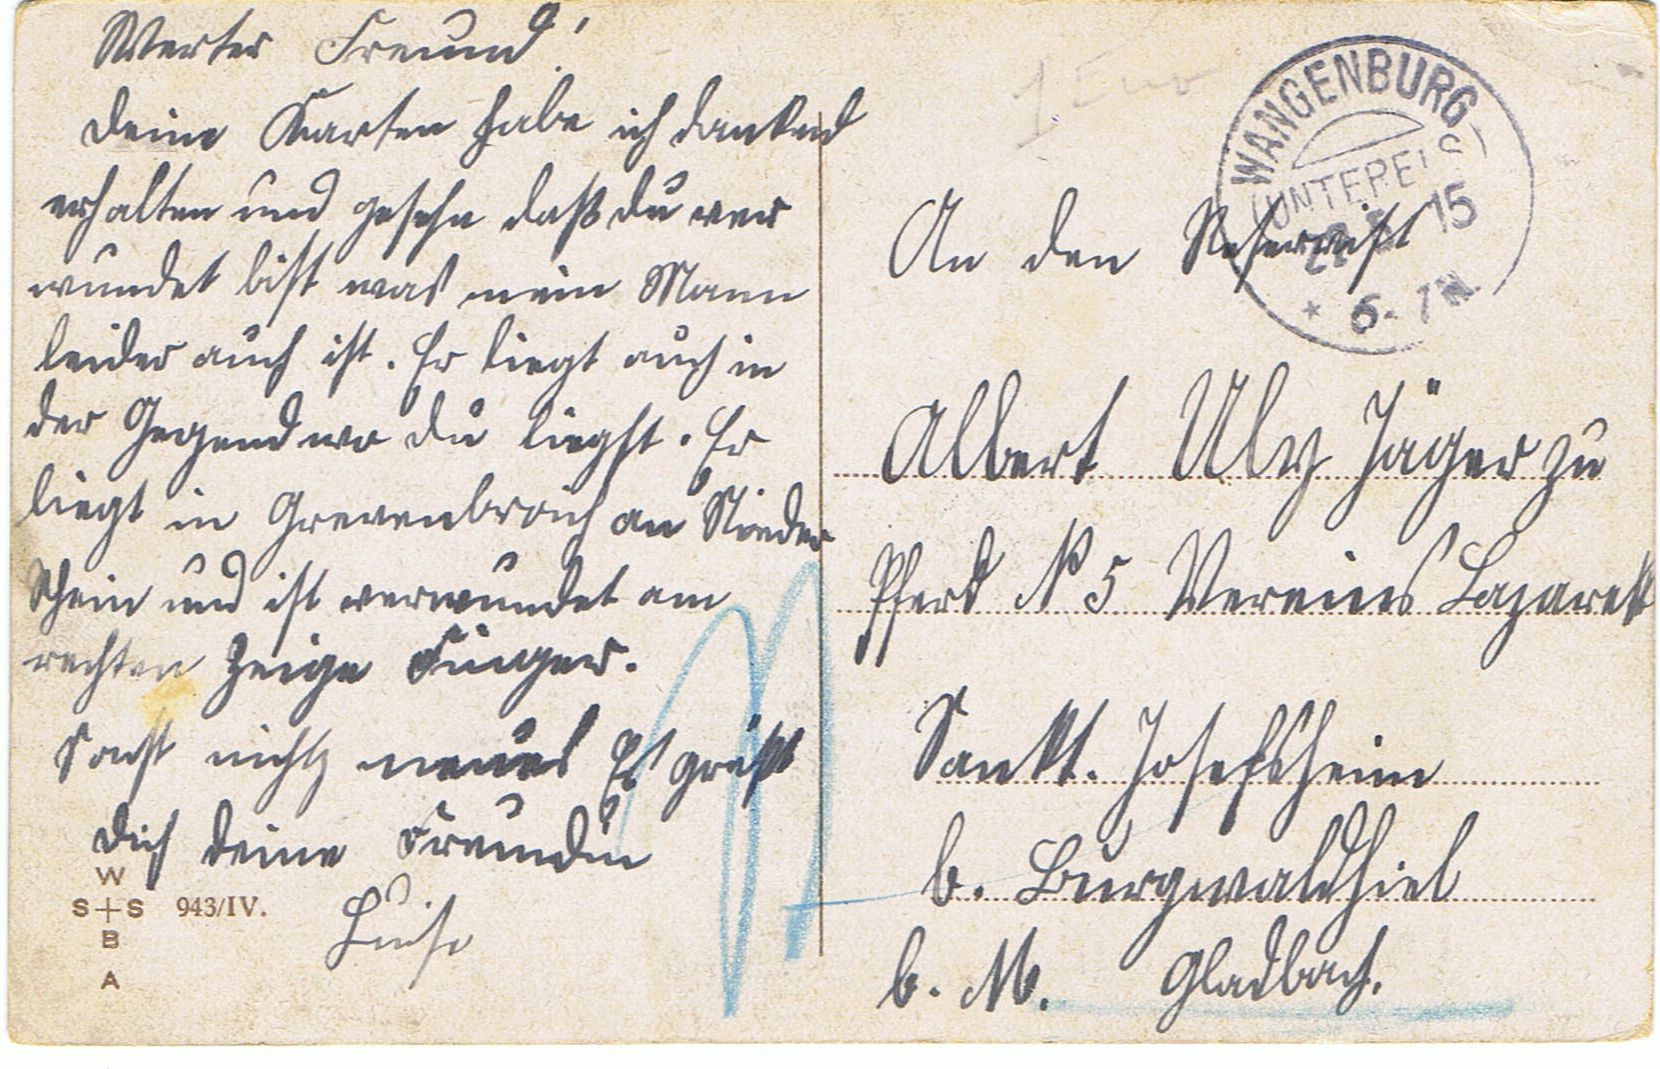 Werter Freund!
Deine Karten habe ich dankend
erhalten und gesehn daß du ver
wundet bist was mein Mann
leider auch ist. Er liegt auch in
der Gegend wo du liegst. Er
liegt in Grevenbroich am Nieder
Rhein und ist verwundet am
rechten Zeige Finger.
Sonst nichts neues Es grüßt
dich deine Freundin
Luise
W
S+S
B
A
943/IV.
1 Euro
WANGENBURG
(UNTERELS)
15
6-7N
An den Reservist
Albert Jäger zu
Pferd N 5 Vereins Lazarett
Sankt. Josefsheim
b. Burgwaldniel
b. M. Gladbach.